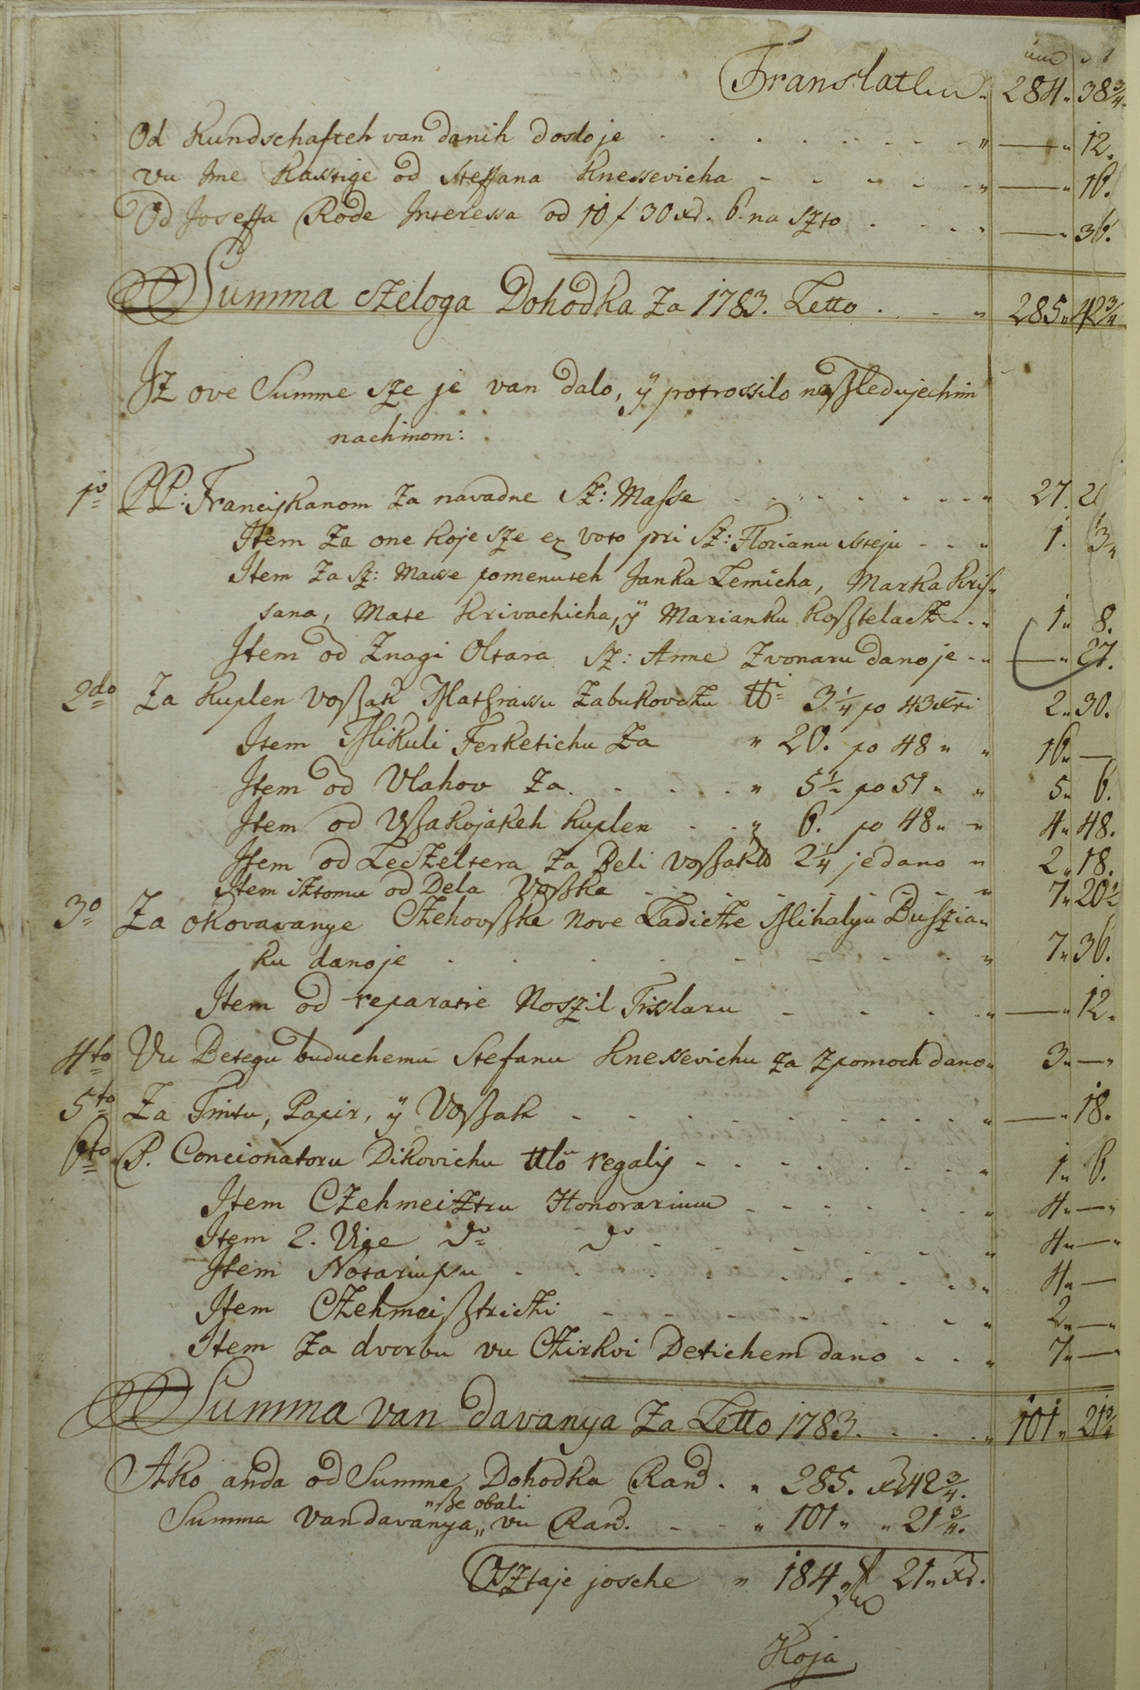 Translatum 284. 38 3/4.
Od Kundschafteh van danih dosto je — 12.
vu Ime Kasstige od Steffana Knessevicha — 16.
Od Joseffa Rode Interessa od 10 f 30 xr. 6. na Szto — 36.
Summa Czeloga Dohodka Za 1783. Letto 285. 42 3/4
Iz ove Summe sze je van dalo, ÿ potrossilo naszledujechim
nachinom:
1o PP: Franciskanom Za navadne Sz: Masse 27. 2
Item Za one koje sze ex voto pri Sz: Florianu steju 1. 3
Item Za Sz: Masse pomenuteh Janka Lemicha, Marka Kris
sana, Mate Krivachicha, ÿ Marianku Kosztelacz 1. 8.
Item od Znagi Oltara Sz: Anne Zvonaru dano je — 27.
2do Za kuplen Voszak Mathiassu Zabukovczku tt 3 1/4 po 43 xri 2. 30.
Item Mikuli Ferketichu Za " 20. po 48 " " 16. —
Item od Vlahov Za " 5 1/2 po 51 " " 5. 6.
Item od Vszakojakeh kuplen " 6. po 48 " 4. 48.
Item od Leczeltera Za Beli Voszak tt 2 1/4 je dano 2. 18.
Item isztomu od Dela Voszka 7. 20 1/2
3o Za okovavanye Czehovszke Nove Ladicze Mihalyu Busztian
ku dano je 7. 36.
Item od reparatie Noszil Tisslaru — 12.
4to Vu Betegu buduchemu Stefanu Knessevichu Za Zpomoch dano 3. —
5to Za Tintu, Papir, ÿ Voszak — 18.
6to P. Concionatoru Dikovichu ttlo regalis 1. 6.
Item Czehmeisztru Honorarium 4. —
Item 2. Vice do do 4. —
Item Notariussu 4. —
Item Czehmeisztriczi 2. —
Item Za dvorbu vu Czirkvi Detichem dano 7. —
Summa van davanya Za Letto 1783. 101. 21 3/4
Ako anda od Summe Dohodka Ran. " 285. xr 42 3/4.
" sze obali
Summa Vandavanya " vu Ran. " 101 " " 21 3/4.
Osztaje josche " 184 " f 21 " xr.
Koja